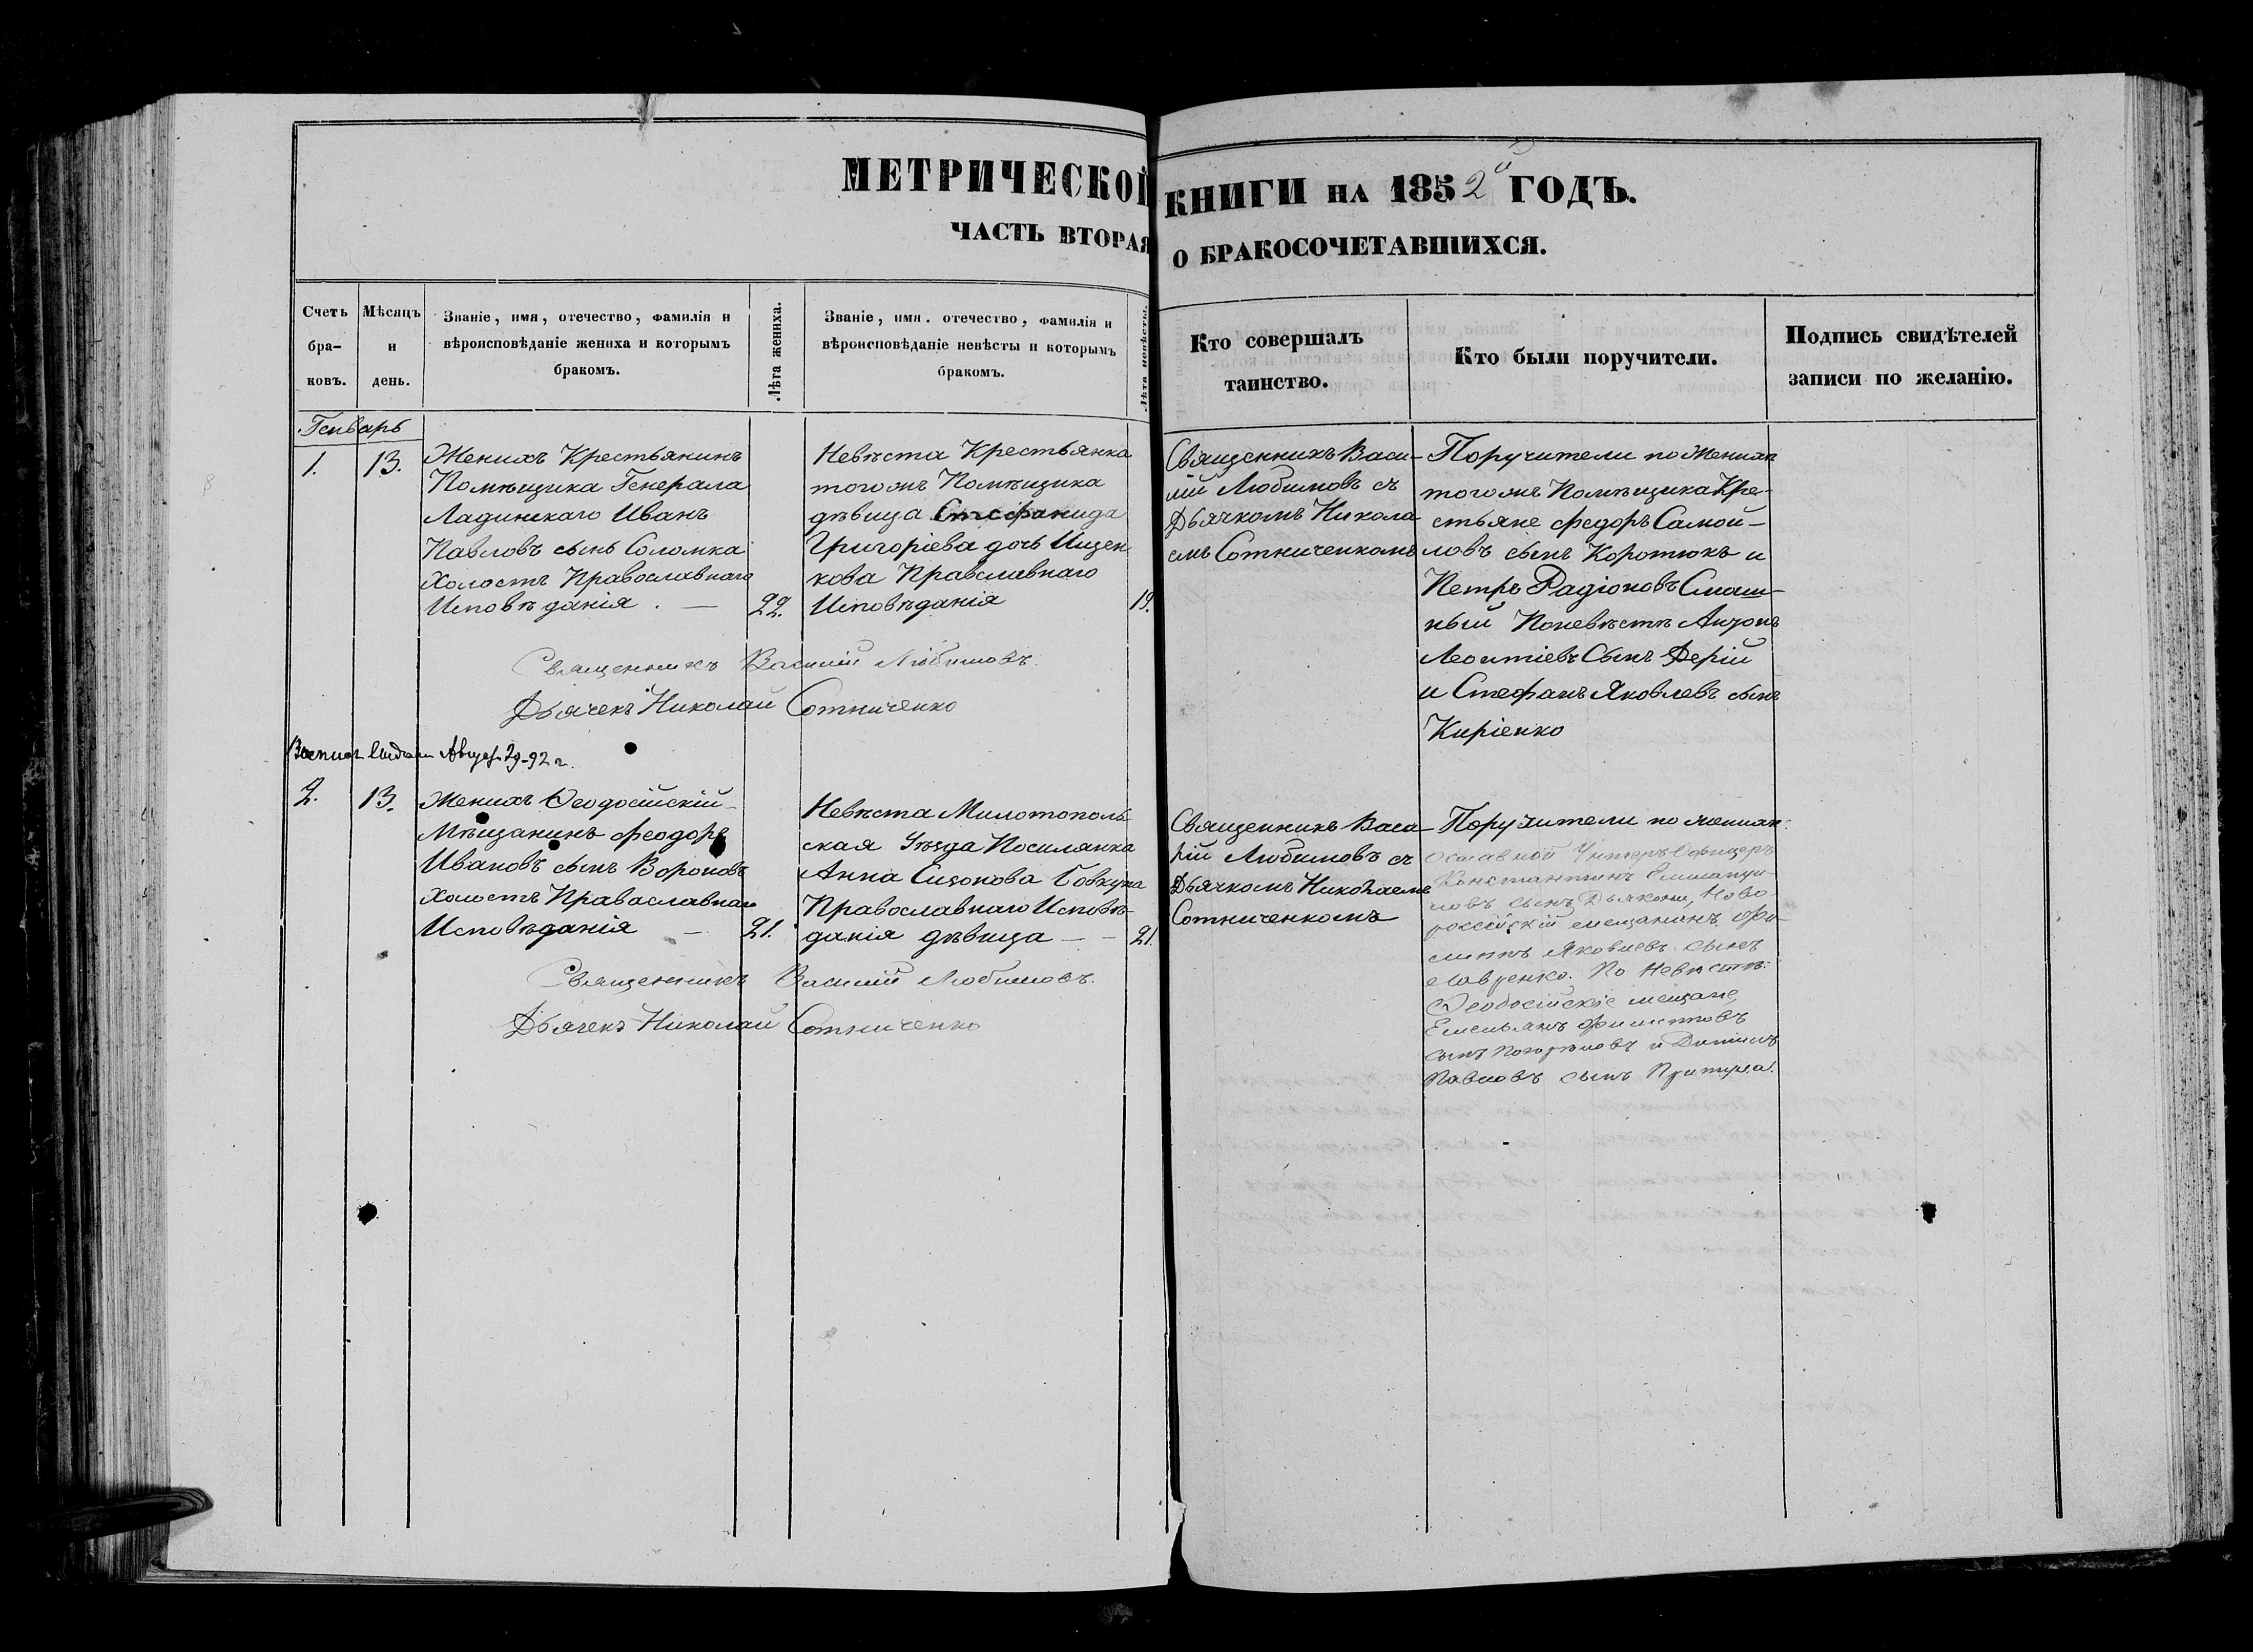 МЕТРИЧЕСКОЙ КНИГИ НА 1852й ГОДЪ.
ЧАСТЬ ВТОРАЯ О БРАКОСОЧЕТАВШИХСЯ.
Счетъ бра- ковъ.
Мѣсяцъ и день.
Званіе, имя, отечество, фамилія и
вѣроисповѣданіе жениха и которымъ
бракомъ.
Лѣта жениха.
Званіе, имя. отечество, фамилія и
вѣроисповѣданіе невѣсты и которымъ
бракомъ.
Лѣта невѣсты.
Кто совершалъ
таинство.
Кто были поручители.
Подпись свидѣтелей
записи по желанію.
Генварь
1.
13.
Женихъ Крестьянинъ
Помѣщика Генерала
Ладинскаго Иванъ
Павловъ сынъ Соломка
Холостъ Православнаго
Исповѣданія . —
22.
Невѣста Крестьянка
тогожъ Помѣщика
дѣвица Стефанида
Григоріева дочь Ищен
кова Православнаго
Исповѣданія
19.
Священникъ Васи-
лій Любимовъ съ
Дьячкомъ Никола
емъ Сотниченкомъ
Поручители по женихѣ
тогожъ Помѣщика Кре-
стьяне Федоръ Самой-
ловъ сынъ Коротюкъ и
Петръ Радіоновъ Смаш-
ный По невѣстѣ
Леонтіевъ Сынъ Дерій
и Стефанъ Яковлевъ сынъ
Киріенко
Священникъ Василій Любимовъ.
Дьячекъ Николай Сотниченко
29-92 г.
2.
13.
Женихъ Ѳеодосійскій
Мѣщанинъ Феодоръ
Ивановъ сынъ Вороновъ
Холостъ Православнаго
Исповѣданія —
21.
Невѣста Милотополь-
ская Уѣзда Посилянка
Анна Сизонова Бовкуна
Православнаго Исповѣ-
данія дѣвица — —
21.
Священникъ Васи-
лій Любимовъ съ
Дьячкомъ Николаемъ
Сотниченкомъ
Поручители по женихѣ:
Оставной Унтеръ Офицеръ
Константинъ
ловъ сынъ Дьякони, Ново-
россійскій мещанинъ Фи-
липпъ Яковлевъ сынъ
Лавренко. По Невѣстѣ:
Ѳеодосійскіе мещане,
Емельянъ Филипповъ
сынъ Погорѣловъ и
Павловъ сынъ
Священникъ Василій Любимовъ.
Дьячекъ Николай Сотниченко